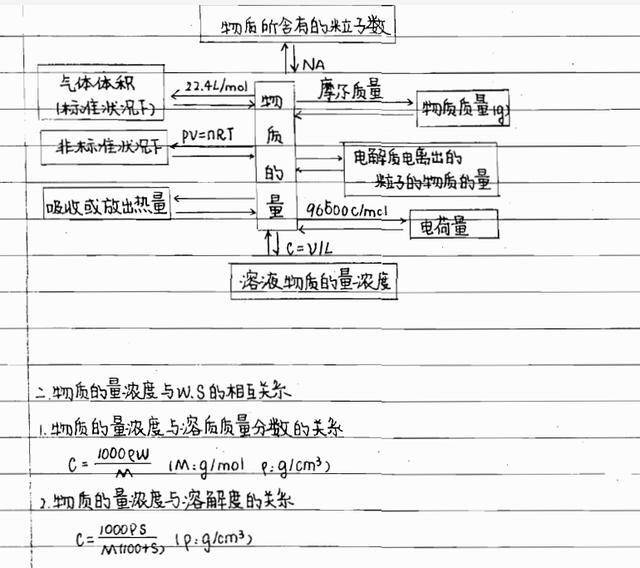 物质所含有的粒子数
NA
气体体积
(标准状况下)
22.4L/mol
物质的量
摩尔质量
物质质量(g)
非标准状况下
PV=nRT
电解质电离出的
粒子的物质的量
吸收或放出热量
96500C/mol
电荷量
C=V/L
溶液物质的量浓度
二.物质的量浓度与W.S的相互关系
1.物质的量浓度与溶质质量分数的关系
C=1000ρW/M (M:g/mol ρ:g/cm³)
2.物质的量浓度与溶解度的关系
C=1000ρS/M(100+S) (ρ:g/cm³)